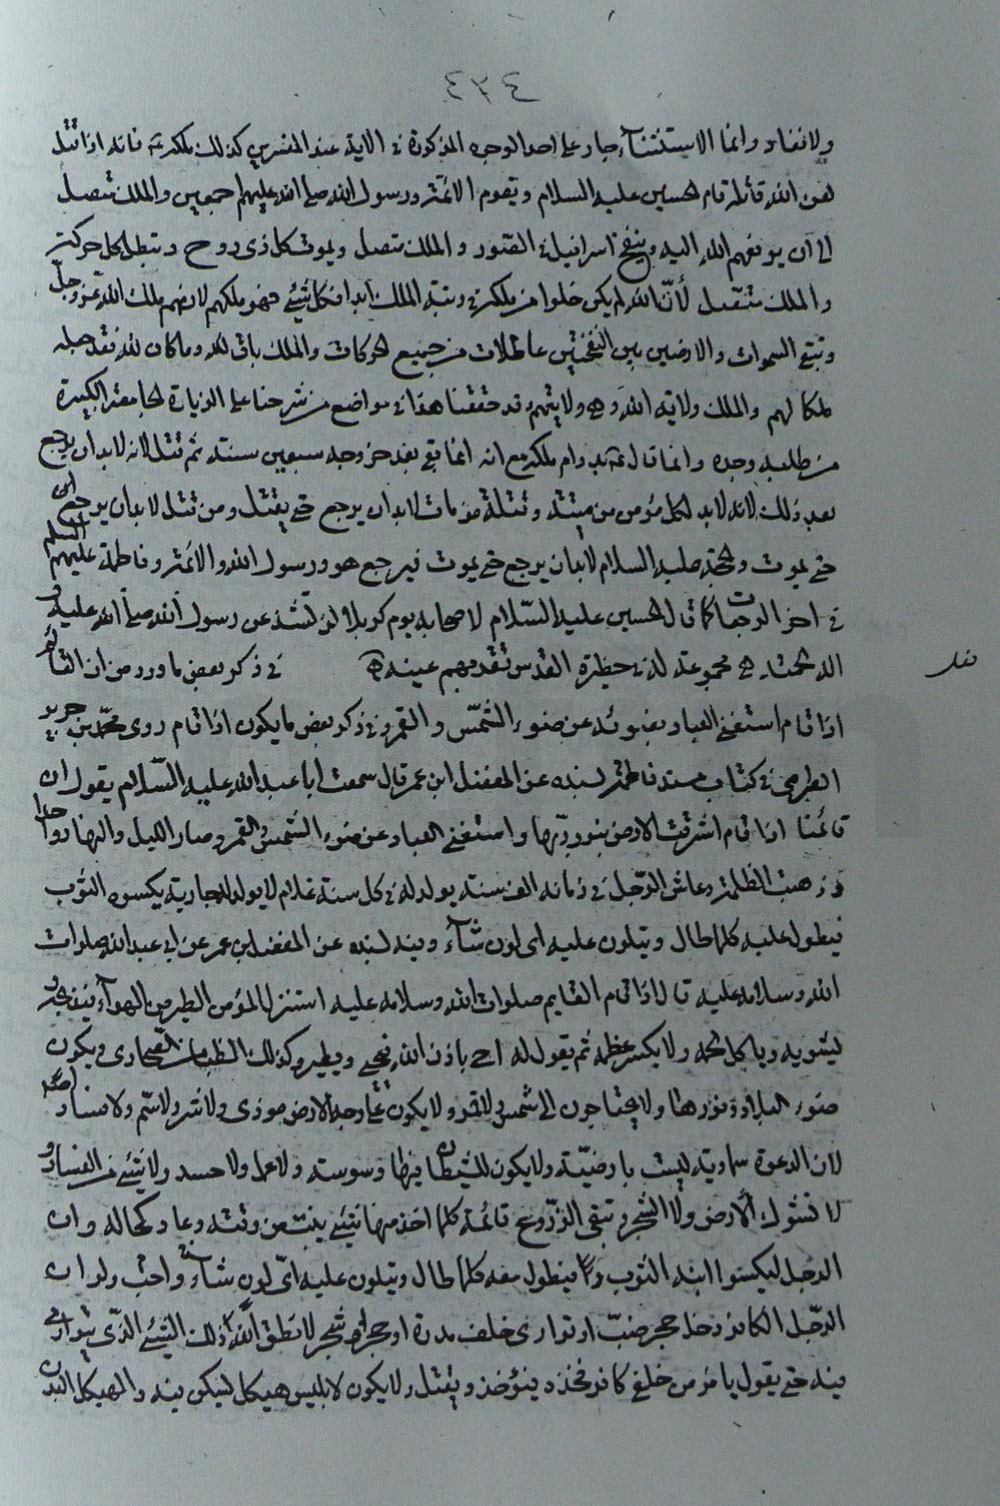 ٤٣٤
ولانفاد وانما الاستثناء جار على احد الوجوه المذكورة في الاية عند المفسرين كذلك ملكه فانه اذا قتل
لعن الله قاتله قام الحسين عليه السلام ويقوم الائمة ورسول الله صلى الله عليهم اجمعين والملك متصل
الى ان يرفعهم الله اليه وينفخ اسرافيل في الصور والملك متصل ويموت كل ذي روح وتبطل كل حركة
والملك متصل لأن الله لم يكن خلوا من ملكه وبقية الملك ابدا فكل شيء فهو ملكهم لانهم ملك الله عز وجل
وتبقى السموات والارضين بين النفختين عاطلات من جميع الحركات والملك باق لله وما كان لله فقد جعله
ملكا لهم والملك ولاية الله وهي ولايتهم وقد حققنا هذا في مواضع من شرحنا على الزيارة الجامعة الكبيرة
من طلبه وجده وانما قال بدوام ملكه مع انه انما بقي بعد خروجه سبعين سنة ثم قتل لانه لابد ان يرجع
بعد ذلك لانه لابد لكل مؤمن من ميتة وقتلة فمن مات لابد ان يرجع حتى يقتل ومن قتل لابد ان يرجع
حتى يموت والحجة عليه السلام لابد ان يرجع حتى يموت فيرجع هو ورسول الله والائمة وفاطمة عليهم السلم
في اخر الرجعات كما قال الحسين عليه السلام لاصحابه يوم كربلا لن تشذ عن رسول الله صلى الله عليه و
اله لحمته هي مجموعة له في حظيرة القدس تقر بهم عينه في ذكر بعض ما ورد من ان القائم
فصل
اذا قام استغنى العباد بضوئه عن ضوء الشمس والقمر وفي ذكر بعض ما يكون اذا قام روى محمد بن جرير
الطبري في كتاب مسند فاطمة بسنده عن المفضل ابن عمر قال سمعت ابا عبد الله عليه السلام يقول ان
قائمنا اذا قام اشرقت الارض بنور ربها واستغنى العباد عن ضوء الشمس والقمر وصار الليل والنهار واحدا
وذهبت الظلمة وعاش الرجل في زمانه الف سنة يولد له في كل سنة غلام لا يولد له جارية يكسوه الثوب
فيطول عليه كلما طال ويتلون عليه اي لون شاء وفيه بسنده عن المفضل بن عمر عن ابي عبد الله صلوات
الله وسلامه عليه قال اذا قام القايم صلوات الله وسلامه عليه استنزل المؤمن الطير من الهواء فيذبحه و
يشويه وياكل لحمه ولا يكسر عظمه ثم يقول له احي باذن الله فيحيى ويطير وكذلك الظباء من الصحارى ويكون
ضوء البلاد ونورها ولا يحتاجون الى شمس ولا قمر ولا يكون على وجه الارض موذي ولا شر ولا سم ولا فساد اصلا
لان الدعوة سماوية ليست بارضية ولا يكون للشيطان فيها وسوسة ولا عمل ولا حسد ولا شيء من الفساد و
لا تشوك الارض ولا الشجر وتبقى الزروع قائمة كلما اخذ منها شيء ينبت من وقته وعاد كحاله وان
الرجل ليكسوا ابنه الثوب فيطول معه كلما طال ويتلون عليه اي لون شاء واحب ولو ان
الرجل الكافر دخل جحر ضب او توارى خلف مدرة او حجر او شجر لانطق الله ذلك الشيء الذي يتوارى
فيه حتى يقول يا مؤمن خلفي كافر فخذه فيؤخذ ويقتل ولا يكون لابليس هيكل ليسكن فيه والهيكل البدن